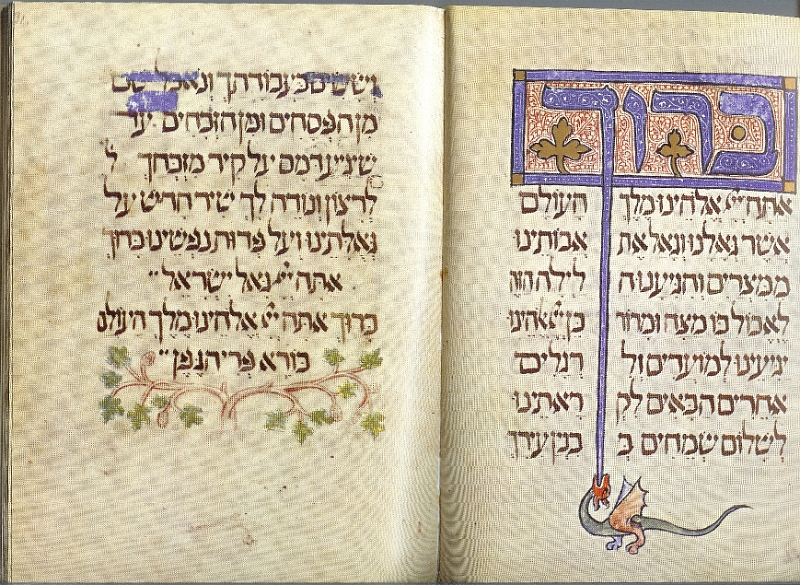 ברוך
אתה יי אלהינו מלך העולם
אשר גאלנו וגאל את אבותינו
ממצרים והגיענו ה לילה הזה
לאכול בו מצה ומרור כן יי אלהינו
יגיענו למועדים ול רגלים
אחרים הבאים לק ראתינו
לשלום שמחים ב בנין עירך
וששים בעבודתך ונאכל שם
מן הפסחים ומן הזבחים עד
שיגיע דמם על קיר מזבחך ל
לרצון ונודה לך שיר חדש על
גאלתינו ועל פדות נפשינו ברוך
אתה יי גאל ישראל
ברוך אתה יי אלהינו מלך העולם
בורא פרי הגפן